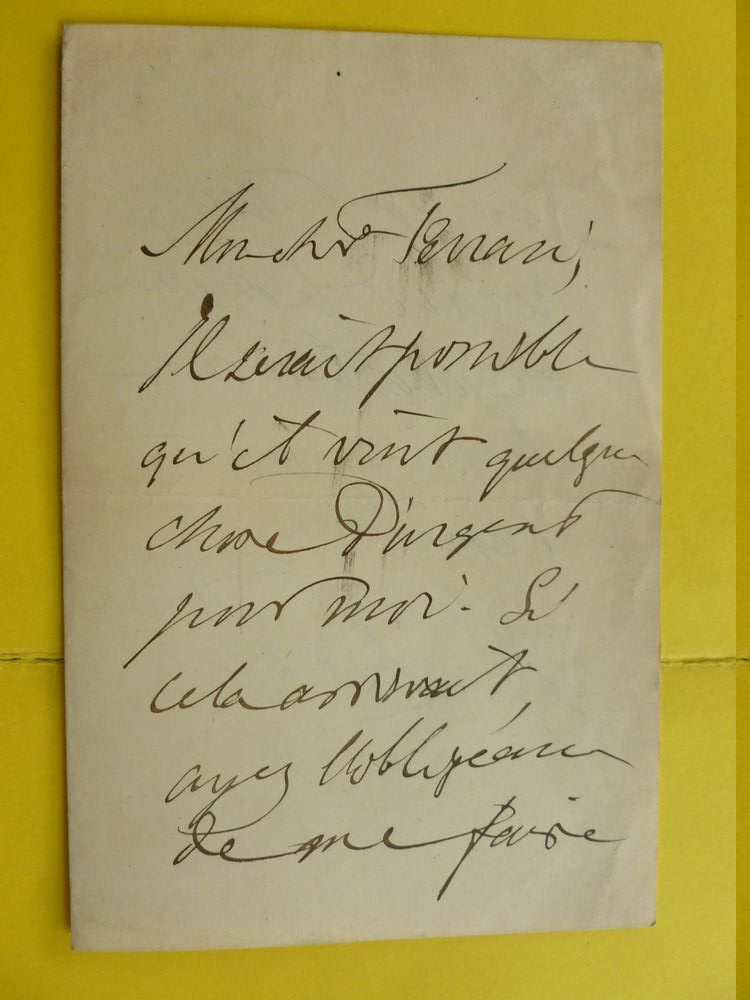 Mon cher Ferrari,
Il serait possible
qu'il vint quelque
chose d'urgent
pour moi. Si
cela arrivait
ayez l'obligeance
de me faire